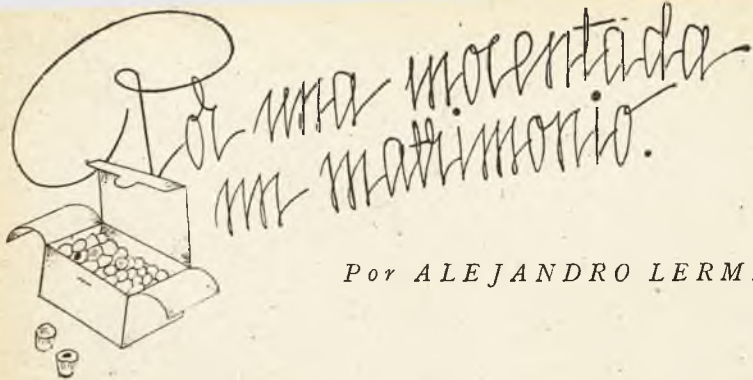 Por una inocentada
un matrimonio.
Por ALEJANDRO LERM